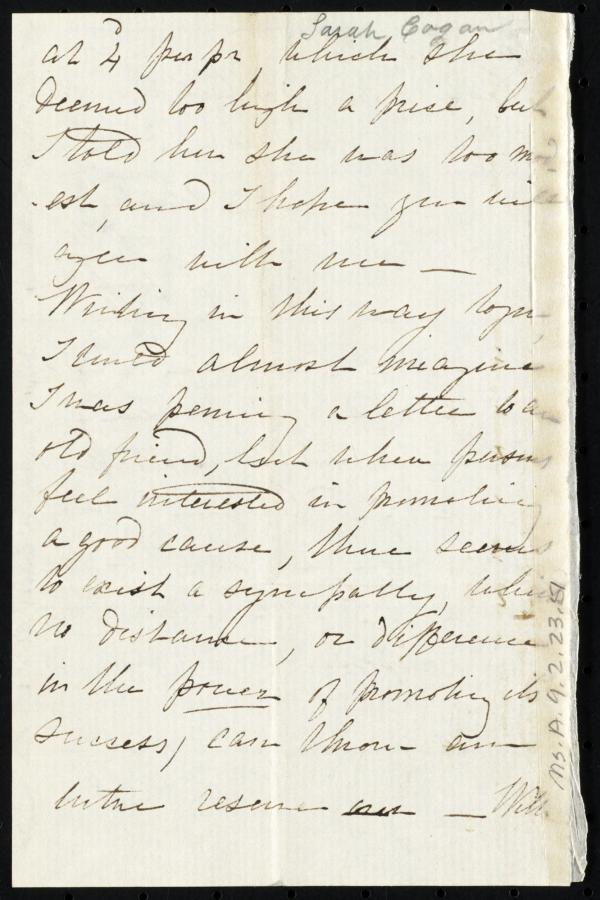 Sarah Cogan
at 4d per pr, which she
deemed too high a price, but
I told her she was too mod
est, and I hope you will
agree with me —
Writing in this way to you,
I could almost imagine
I was penning a letter to an
old friend, but when persons
feel interested in promoting
a good cause, there seems
to exist a sympathy, which
no distance, or difference
in the power of promoting its
success, can throw an
entire reserve — With
Ms. A. 9. 2. 23. 51